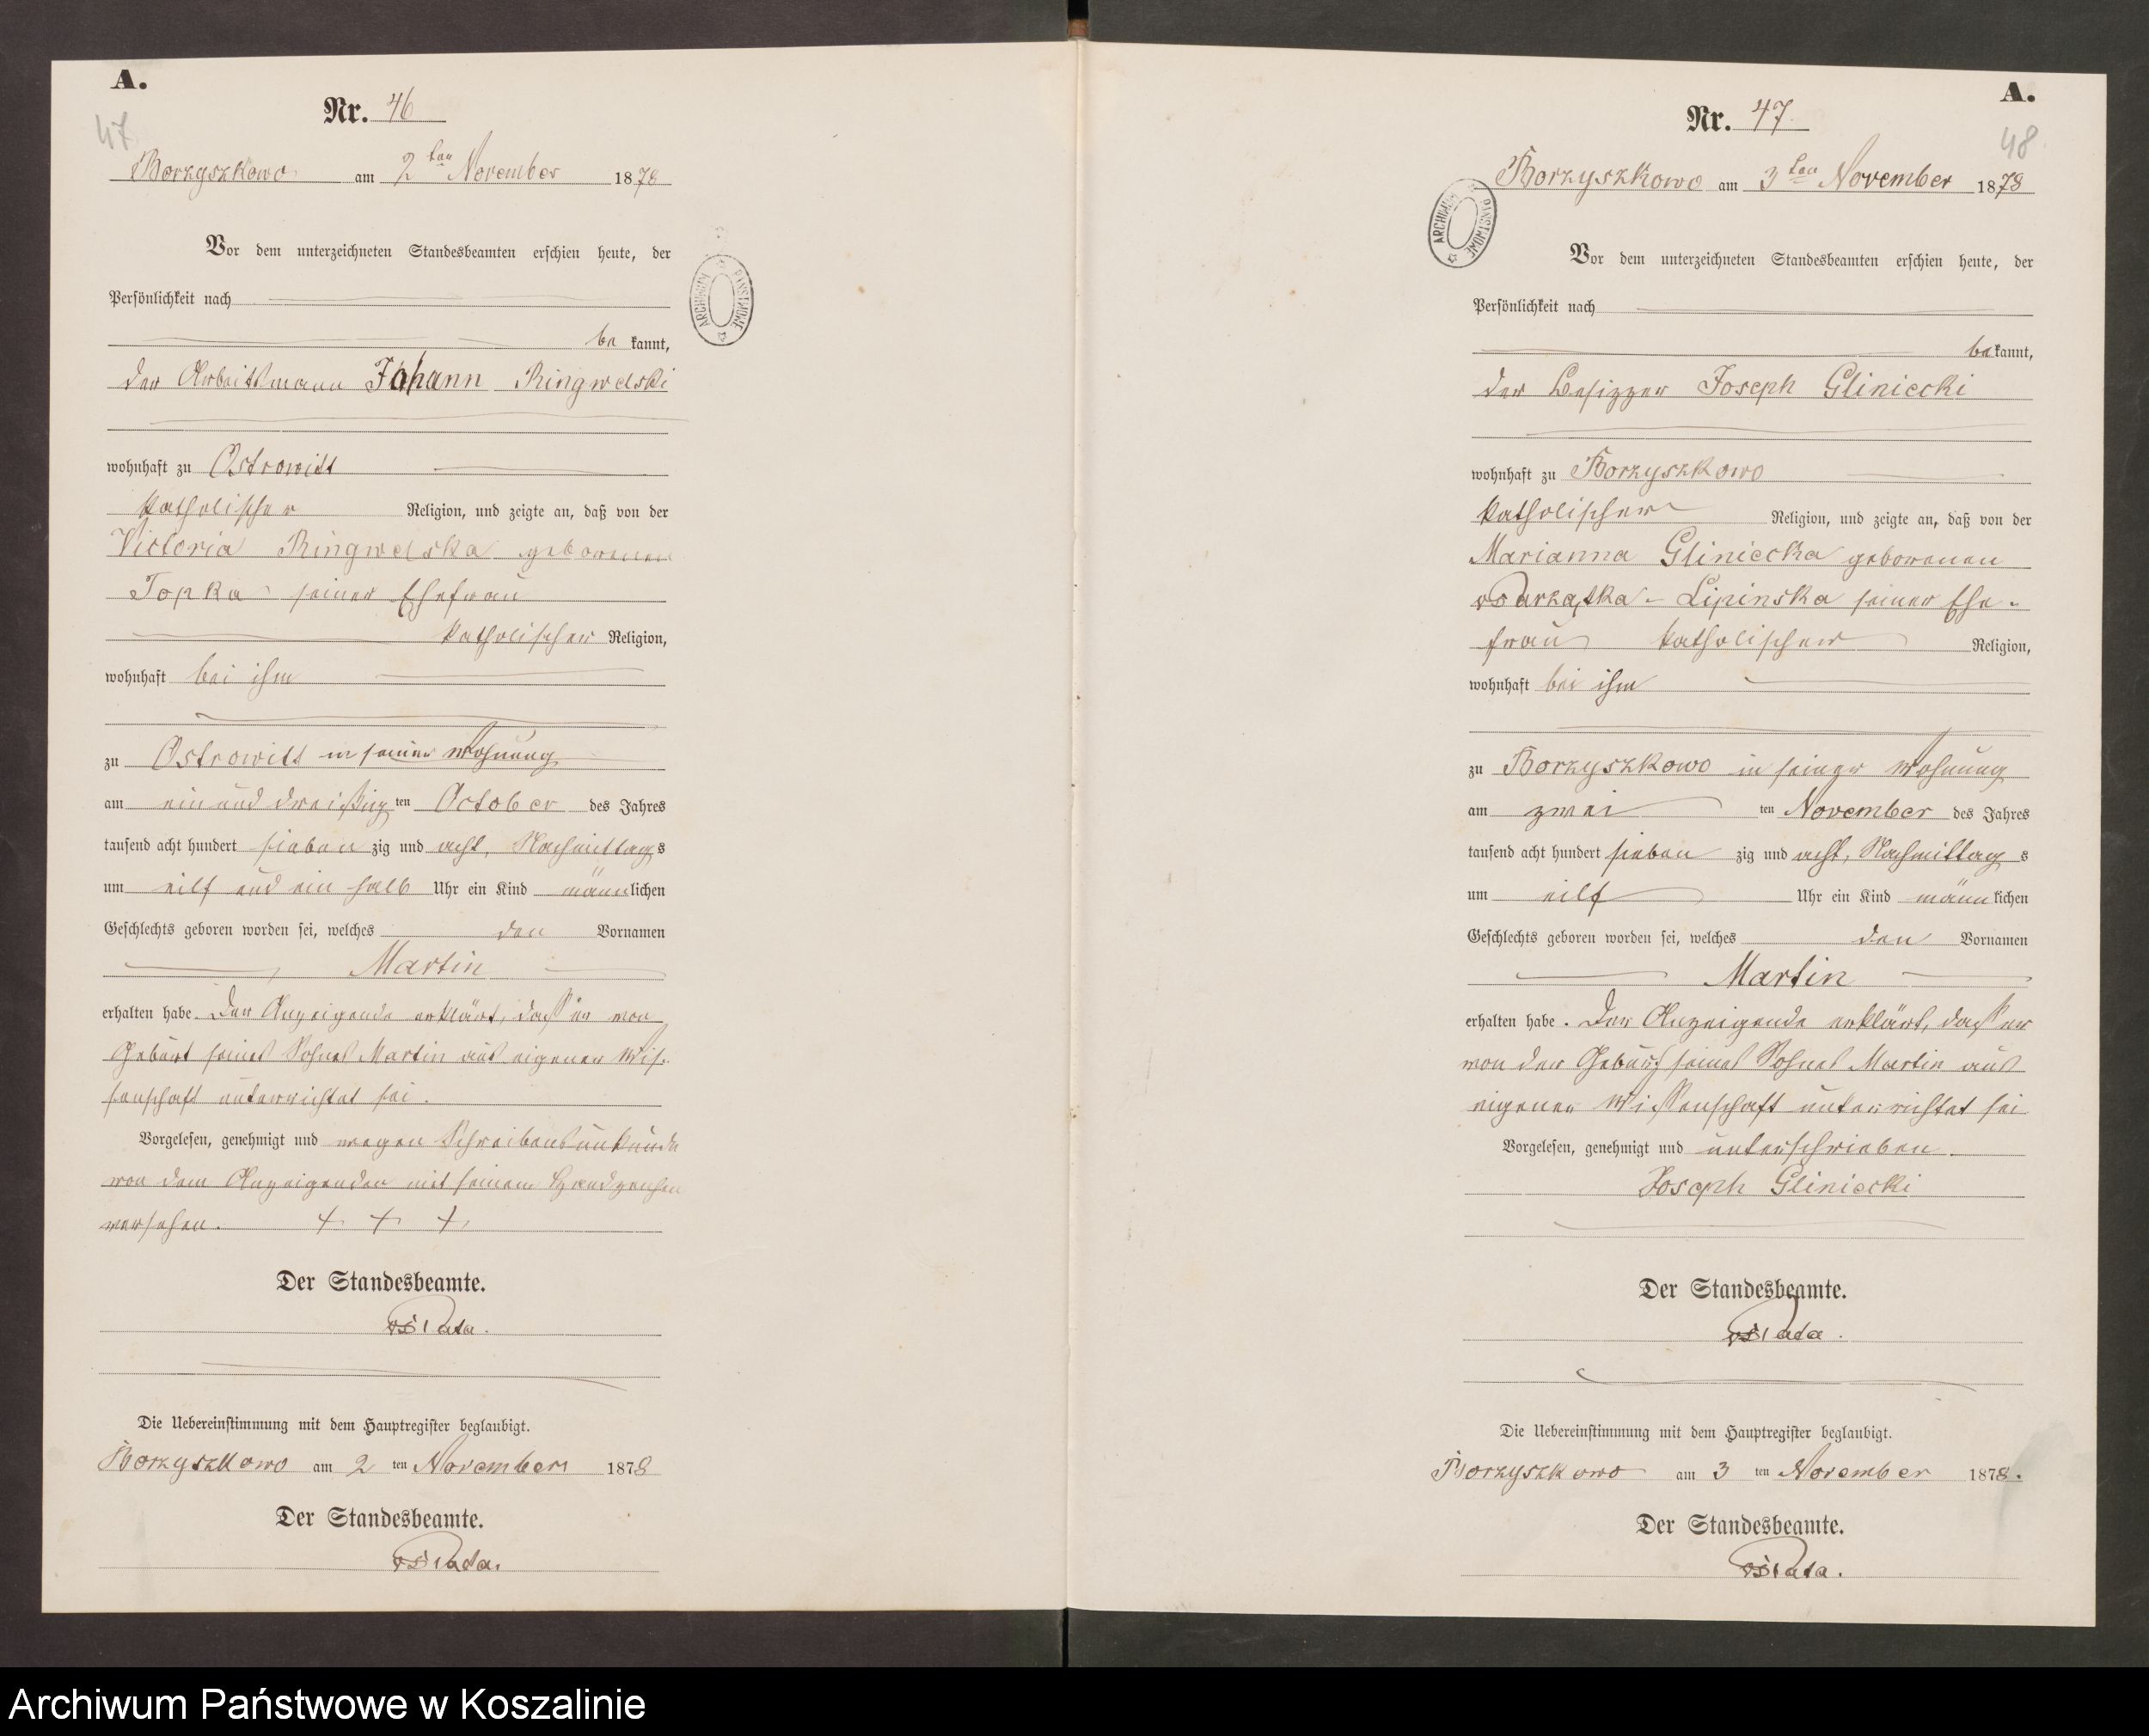 A.
47
Nr. 46
Borzyszkowo am 2ten November 1878
Vor dem unterzeichneten Standesbeamten erschien heute, der
Persönlichkeit nach
be kannt,
der Arbeitsmann Johann Ringwelski
wohnhaft zu Ostrowitt
katholischer Religion, und zeigte an, daß von der
Victoria Ringwelska geborenen
Topka seiner Ehefrau
katholischer Religion,
wohnhaft bei ihm
zu Ostrowitt in seiner Wohnung
am ein und dreißig ten October des Jahres
tausend acht hundert sieben zig und acht, Nachmittags
um eilf und ein halb Uhr ein Kind männlichen
Geschlechts geboren worden sei, welches den Vornamen
Martin
erhalten habe. Der Anzeigende erklärt, daß er von
Geburt seines Sohnes Martin aus eigener Wis-
senschaft unterrichtet sei.
Vorgelesen, genehmigt und wegen Schreibensunkunde
von dem Anzeigenden mit seinem Handzeichen
versehen. + + +
Der Standesbeamte.
Die Uebereinstimmung mit dem Hauptregister beglaubigt.
Borzyszkowo am 2 ten November 1878
Der Standesbeamte.
ARCHIWUM PAŃSTWOWE
A.
48
Nr. 47
Borzyszkowo am 3ten November 1878
ARCHIWUM PAŃSTWOWE
Vor dem unterzeichneten Standesbeamten erschien heute, der
Persönlichkeit nach
be kannt,
der Besizzer Joseph Gliniecki
wohnhaft zu Borzyszkowo
katholischer Religion, und zeigte an, daß von der
Marianna Gliniecka geborenen
Lipinska seiner Ehe-
frau katholischer Religion,
wohnhaft bei ihm
zu Borzyszkowo in seiner Wohnung
am zwei ten November des Jahres
tausend acht hundert sieben zig und acht, Nachmittags
um eilf Uhr ein Kind männlichen
Geschlechts geboren worden sei, welches den Vornamen
Martin
erhalten habe. Der Anzeigende erklärt, daß er
von der Geburt seines Sohnes Martin aus
eigener Wissenschaft unterrichtet sei
Vorgelesen, genehmigt und unterschrieben.
Joseph Gliniecki
Der Standesbeamte.
Die Uebereinstimmung mit dem Hauptregister beglaubigt.
Borzyszkowo am 3 ten November 1878.
Der Standesbeamte.
Archiwum Państwowe w Koszalinie